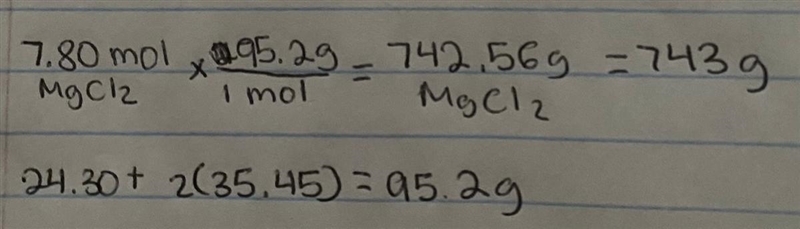 7.80 mol MgCl2 × 95.2g / 1 mol = 742.56g MgCl2 = 743 g
24.30 + 2(35.45) = 95.2g